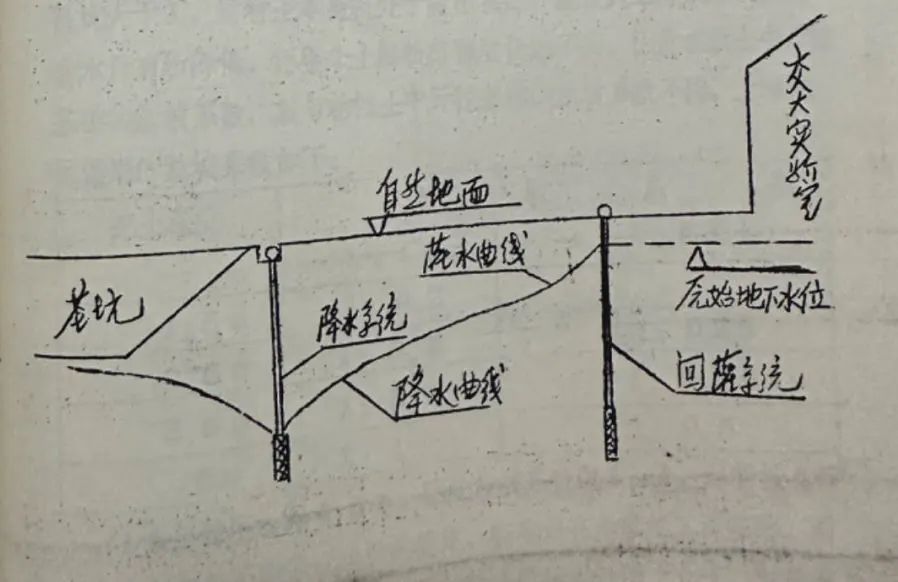 交大实验室
自然地面
灌水曲线
原始地下水位
基坑
降水系统
降水曲线
回灌系统